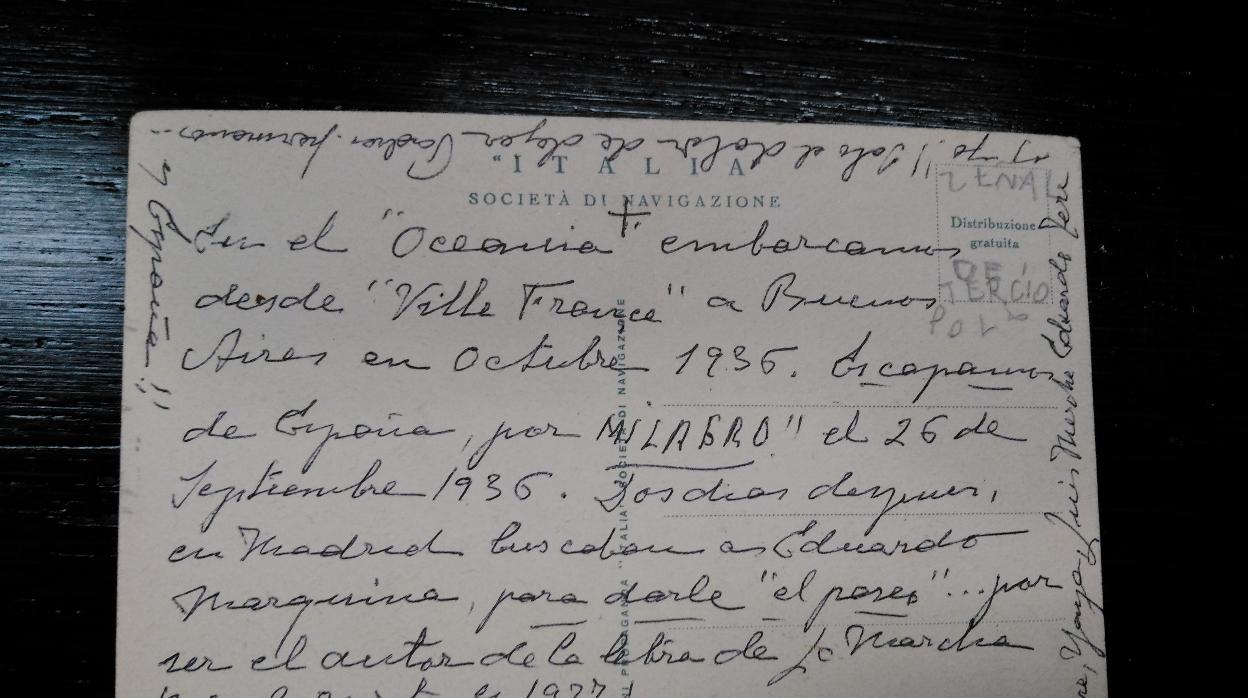 y yo!! Solo el dolor de dejar Padres, hermanos...
y España!!
"ITALIA
SOCIETÀ DI NAVIGAZIONE
ZENAL
Distribuzione
gratuita
DE
TERCIO
POL
En el "Oceania" embarcamos
desde "Ville France" a Buenos
Aires en Octubre 1936. Escapamos
de España, por MILAGRO" el 26 de
Septiembre 1936. Dos dias despues,
en Madrid buscaban a Eduardo
Marquina, para darle "el paseo"... por
ser el autor de la letra de la Marcha
"ITALIA" SOCIETÀ DI NAVIGAZIONE
Luis Eduardo